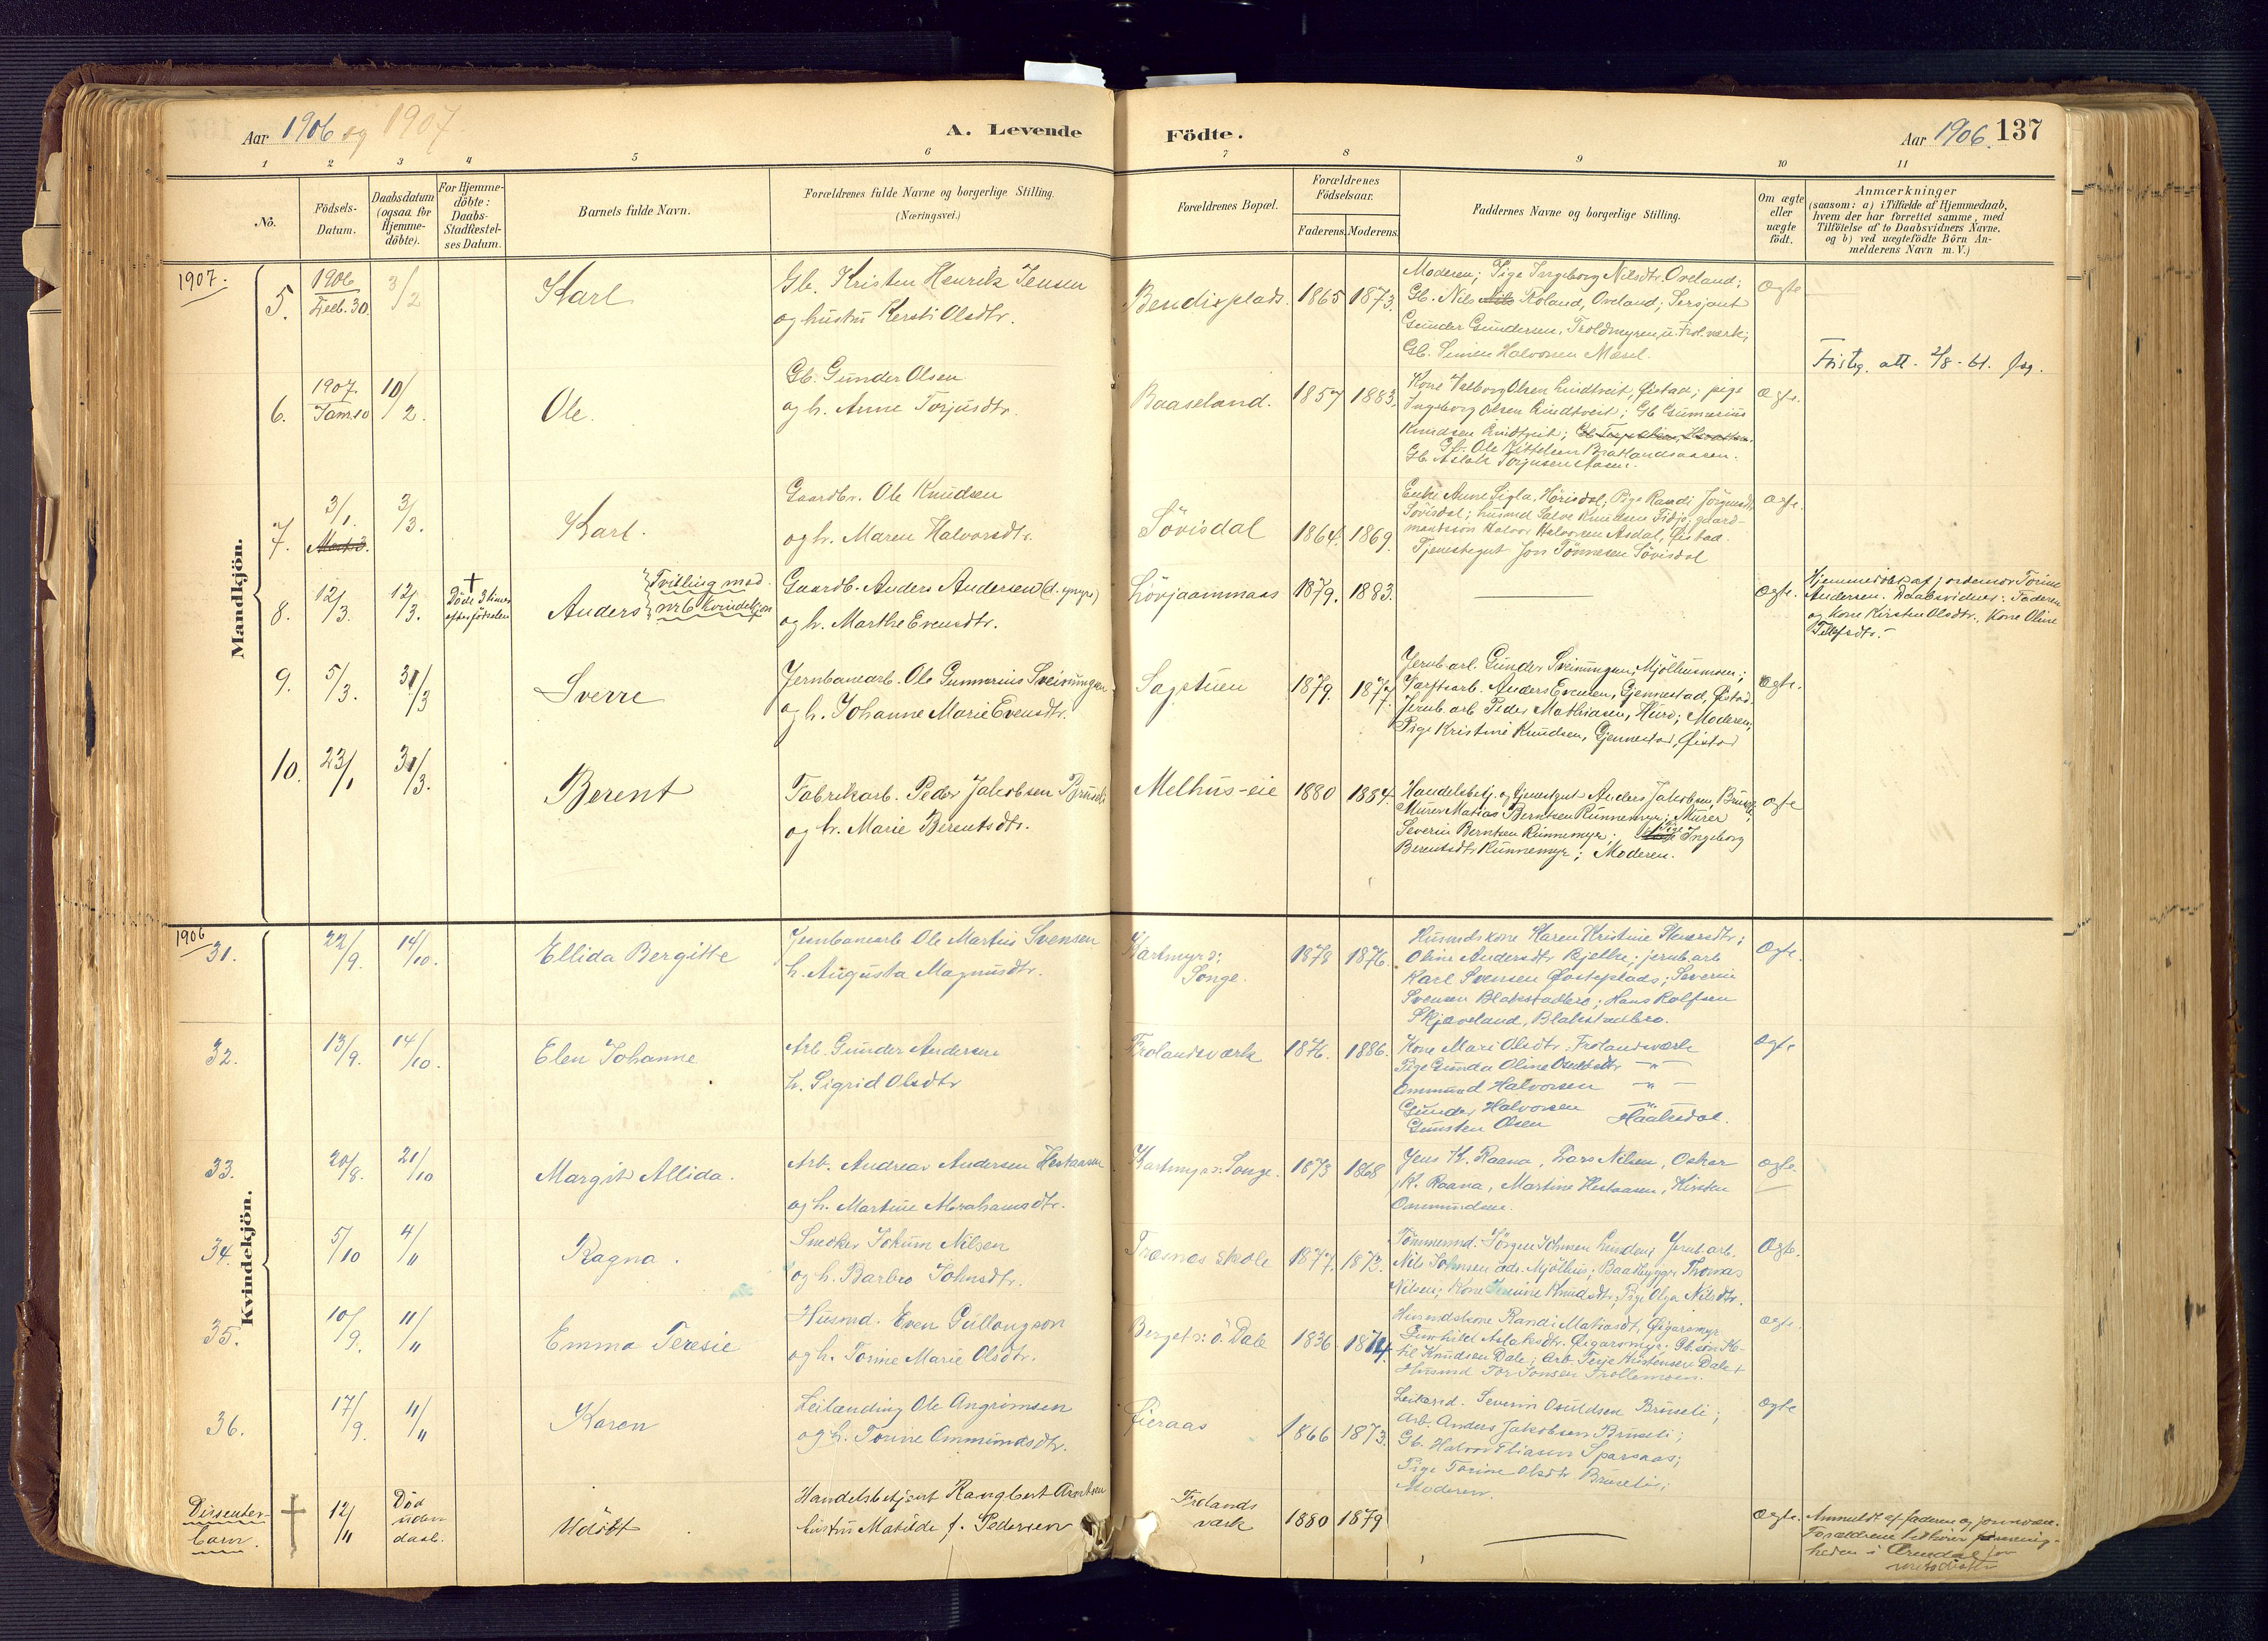 Aar 1906 og 1907.
A. Levende Födte.
Aar 1906. 137
1 2 3 4 5 6 7 8 9 10 11
No.
Födsels-Datum.
Daabsdatum (ogsaa for Hjemme-döbte).
For Hjemme-döbte: Daabs-Stadfæstel-ses Datum.
Barnets fulde Navn.
Forældrenes fulde Navne og borgerlige Stilling.
(Næringsvei.)
Forældrenes Bopæl.
Forældrenes Födselsaar.
Faderens. Moderens.
Faddernes Navne og borgerlige Stilling.
Om ægte eller uægte födt.
Anmærkninger
(saasom: a) i Tilfælde af Hjemmedaab,
hvem der har forrettet samme, med
Tilföielse af to Daabsvidners Navne.
og b) ved uægtefödte Börn An-
melderens Navn m. V.)
Mandkjön.
1907.
5. 1906 Deb. 30. 3/2 Karl
Gb. Kristen Henrik Jensen
og hustru Kersti Olsdtr.
Bendixplads. 1865 1873.
Moderen; Pige Ingeborg Nilsdtr. Oveland;
Gb. Nils Roland, Oveland; Sersjant
Gunder Gundersen, Troldmyren u. Frol.værk;
Gb. Simen Halvorsen Mæsel.
Ægte
Fristg. att. 2/8-61.
6. 1907. Jan. 10 10/2. Ole.
Gb. Gunder Olsen
og h. Anne Torjusdtr.
Baaseland. 1857 1883.
Kone Valborg Olsen Lindtveit, Øistad; pige
Ingeborg Olsen Lindtveit; Gb Gumarius
Knudsen Lindtveit;
Gb. Ole Kittelsen Bratlandsaasen.
Gb Aslak Torjusen Aasen.
Ægte.
7. 3/1. 3/3. Karl.
Gaardbr. Ole Knudsen
og h. Maren Halvorsdtr.
Sövisdal 1864. 1869.
Enke Anne Sigla, Hörisdal; Pige Randi Jörgensdtr
Sövisdal; husmd Salve Knudsen Fidjo; gaard-
mandssön Halvor Halvorsen Asdal, Øistad.
Tjenestegut Jon Tönnesen Sövisdal
Ægte.
8. 12/3. 12/3. † Döde 3 timer efter fötselen
Anders Tvilling med nr 6 kvindekjön
Gaardb. Anders Andersen (d. yngre)
og h. Marthe Evensdtr.
Lövjaammaas 1879. 1883.
Ægte.
Hjemmedöbt af jordemor Torine
Andersen. Daabsvidner: Faderen
og Kone Kirsten Olsdtr., Kone Oline
Tellefsdtr.
9. 5/3. 31/3 Sverre
Jernbanearb. Ole Gunnerius Sveinungsen
og h. Johanne Marie Evensdtr.
Sagstuen 1879. 1877.
Jernb.arb. Gunder Sveinungsen, Mjölhusmoen;
Værftsarb. Anders Evensen, Gjennestad, Øistad.
Jernb.arb. Peder Mathiasen, Huro; Moderen;
Pige Kristine Knudsen, Gjennestad, Øistad
Ægte.
10. 23/1 31/3. Berent
Fabrikarb. Peder Jakobsen Bruseli
og h. Marie Berentsdtr.
Melhus-eie 1880 1884.
Handelsbetj. og tjenestgut Anders Jakobsen, Bruseli;
Murer Matias Berntsen Runnemyr; Murer
Severin Berntsen Runnemyr; Pige Ingeborg
Berentsdtr Runnemyr; Moderen.
Ægte
Kvindekjön.
1906
31. 22/9. 14/10. Ellida Bergitte
Jernbanearb Ole Martin Svensen
h. Augusta Magnusdtr.
Kartmyr s: Songe. 1878 1876.
Husmdskone Karen Kristine
Oline Andersdtr Bjelke; jernb.arb
Karl Svensen Østeplads; Severin
Svensen Blakstadbro; Hans Rolfsen
Skjæveland, Blakstadbro.
Ægte.
32. 13/9. 14/10. Elen Johanne
Arb. Gunder Andersen
h. Sigrid Olsdtr
Frolandsværk 1876. 1886.
Kone Mari Olsdtr. Frolandsværk
Pige Gunda Oline Osuldsdtr — " —
Ommund Halvorsen — " —
Gunder Halvorsen — " —
Gunsten Olsen Haaksdal.
Ægte
33. 20/8. 21/10 Margit Allida.
Arb. Andreas Andersen Hestaasen
og h. Martine Abrahamsdtr.
Kartmyr s: Songe. 1873 1868
Jens K. Raana, Lars Nilsen, Oskar
K. Raana, Martine Hestaasen, Kirsten
Ommundsen.
Ægte.
34. 5/10 4/11 Ragna.
Snedker Jokum Nilsen
og h. Barbro Johnsdtr.
Træsnes skole 1877. 1873.
Tömmermd. Jörgen Johnsen Linden; Jernb.arb.
Nils Johnsen Mjölhus; Baadbygger Thomas
Nilsen; Kone Knudsdtr; Pige Olga Nilsdtr.
Ægte.
35. 10/9. 11/11 Emma Teresie
Husmd. Even Gullaugson
og h. Torine Marie Olsdtr.
Berget s: ö. Dale 1836 1874.
Husmdskone Randi Matiasdt, Øigarsmyr
Gunhild Aslaksdtr. Øigarsmyr; Gb.sön K-
til Knudsen Dale; Arb. Terje Kristensen Dale +
Husmd Tor Jonsen Trollemoen.
Ægte.
36. 17/9. 11/11 Karen
Leilænding Ole Angrimsen
og h. Torine Ommundsdtr.
Lieraas 1866 1873.
Leilænd. Severin Osuldsen Bruseli;
Arb. Anders Jakobsen Bruseli;
Gb. Halvor Eliasen Sparsaas;
Pige Torine Olsdtr Bruseli;
Moderen.
Ægte
Dissenter-barn. † 12/11 Död uden daab. Udöbt
Handelsbetjent Rangbert Arntsen
hustru Matilde f. Pedersen
Frolands værk 1880 1879
Ægte.
Anmeldt af faderen og jormoder.
Forældrene tilhörer
heden i Arendal